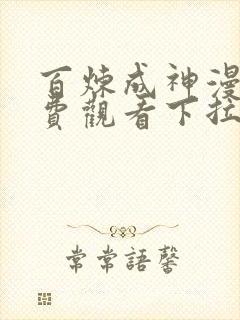 百煉成神漫
費觀看下拉
常常語馨